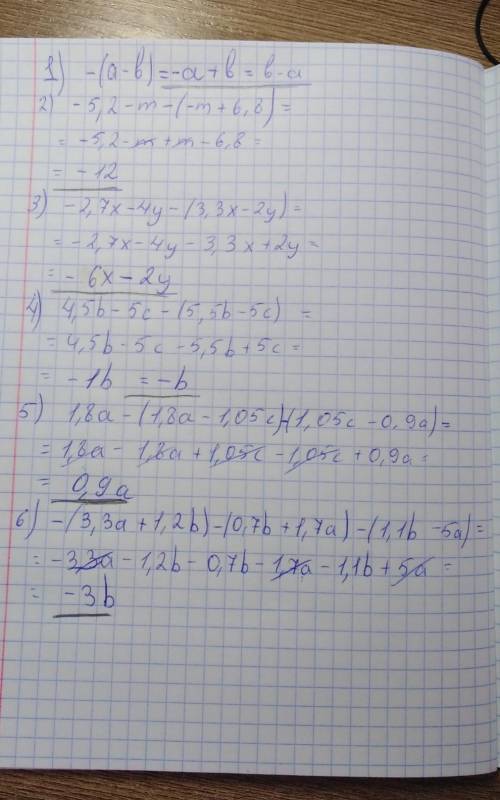 1) -(a-b)=-a+b=b-a
2) -5,2-m-(-m+6,8)=
= -5,2-m+m-6,8=
= -12
3) -2,7x-4y-(3,3x-2y)=
= -2,7x-4y-3,3x+2y=
= -6x-2y
4) 4,5b-5c-(5,5b-5c) =
= 4,5b-5c-5,5b+5c=
= -1b =-b
5) 1,8a-(1,8a-1,05c)-(1,05c-0,9a)=
= 1,8a-1,8a+1,05c-1,05c+0,9a=
= 0,9a
6) -(3,3a+1,2b)-(0,7b+1,7a)-(1,1b-5a)=
= -3,3a-1,2b-0,7b-1,7a-1,1b+5a=
= -3b